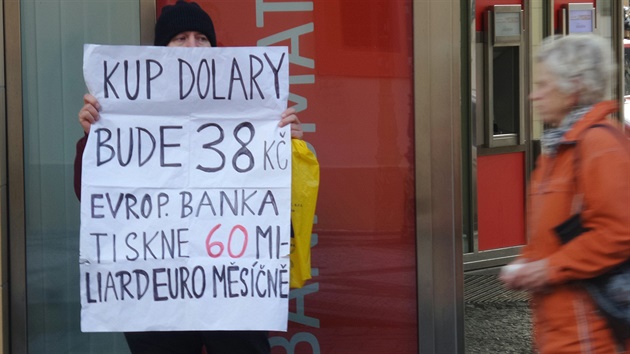 KUP DOLARY
BUDE 38 KČ
EVROP. BANKA
TISKNE 60 MI-
LIARD EURO MĚSÍČNĚ